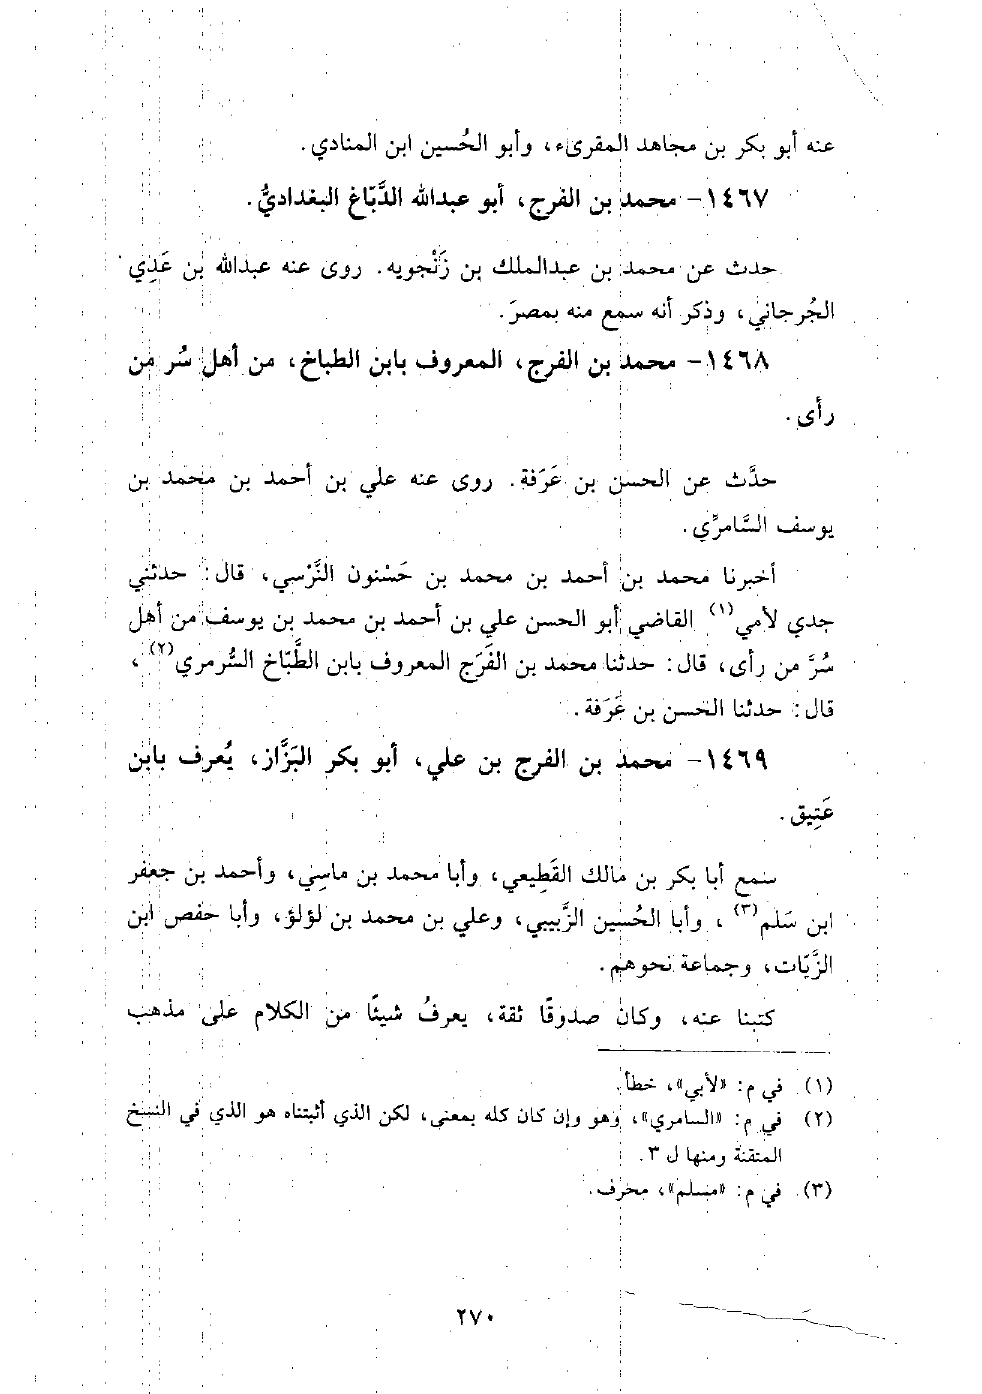 عنه أبو بكر بن مجاهد المقرىء، وأبو الحُسين ابن المنادي.
١٤٦٧- محمد بن الفرج، أبو عبدالله الدَّبّاغ البغداديُّ.
حدث عن محمد بن عبدالملك بن زَنْجويه. روى عنه عبدالله بن عَدِي
الجُرجاني، وذكر أنه سمع منه بمصرَ.
١٤٦٨- محمد بن الفرج، المعروف بابن الطباخ، من أهل سُر من
رأى.
حدَّث عن الحسن بن عَرَفة. روى عنه علي بن أحمد بن محمد بن
يوسف السَّامرِّي.
أخبرنا محمد بن أحمد بن محمد بن حَسْنون النَّرْسي، قال: حدثني
جدي لأمي(١) القاضي أبو الحسن علي بن أحمد بن محمد بن يوسف من أهل
سُرَّ من رأى، قال: حدثنا محمد بن الفَرَج المعروف بابن الطَّبّاخ السُّرمري(٢)،
قال: حدثنا الحسن بن عَرَفة.
١٤٦٩- محمد بن الفرج بن علي، أبو بكر البَزَّاز، يُعرف بابن
عَتِيق.
سمع أبا بكر بن مالك القَطِيعي، وأبا محمد بن ماسِي، وأحمد بن جعفر
ابن سَلم(٣)، وأبا الحُسين الزَّبيبي، وعلي بن محمد بن لؤلؤ، وأبا حفص ابن
الزَّيّات، وجماعة نحوهم.
كتبنا عنه، وكان صدوقًا ثقة، يعرفُ شيئًا من الكلام على مذهب
(١) في م: «لأبي»، خطأ.
(٢) في م: «السامري»، وهو وإن كان كله بمعنى، لكن الذي أثبتناه هو الذي في النسخ
المتقنة ومنها ل ٣.
(٣) في م: «مسلم»، محرف.
٢٧٠